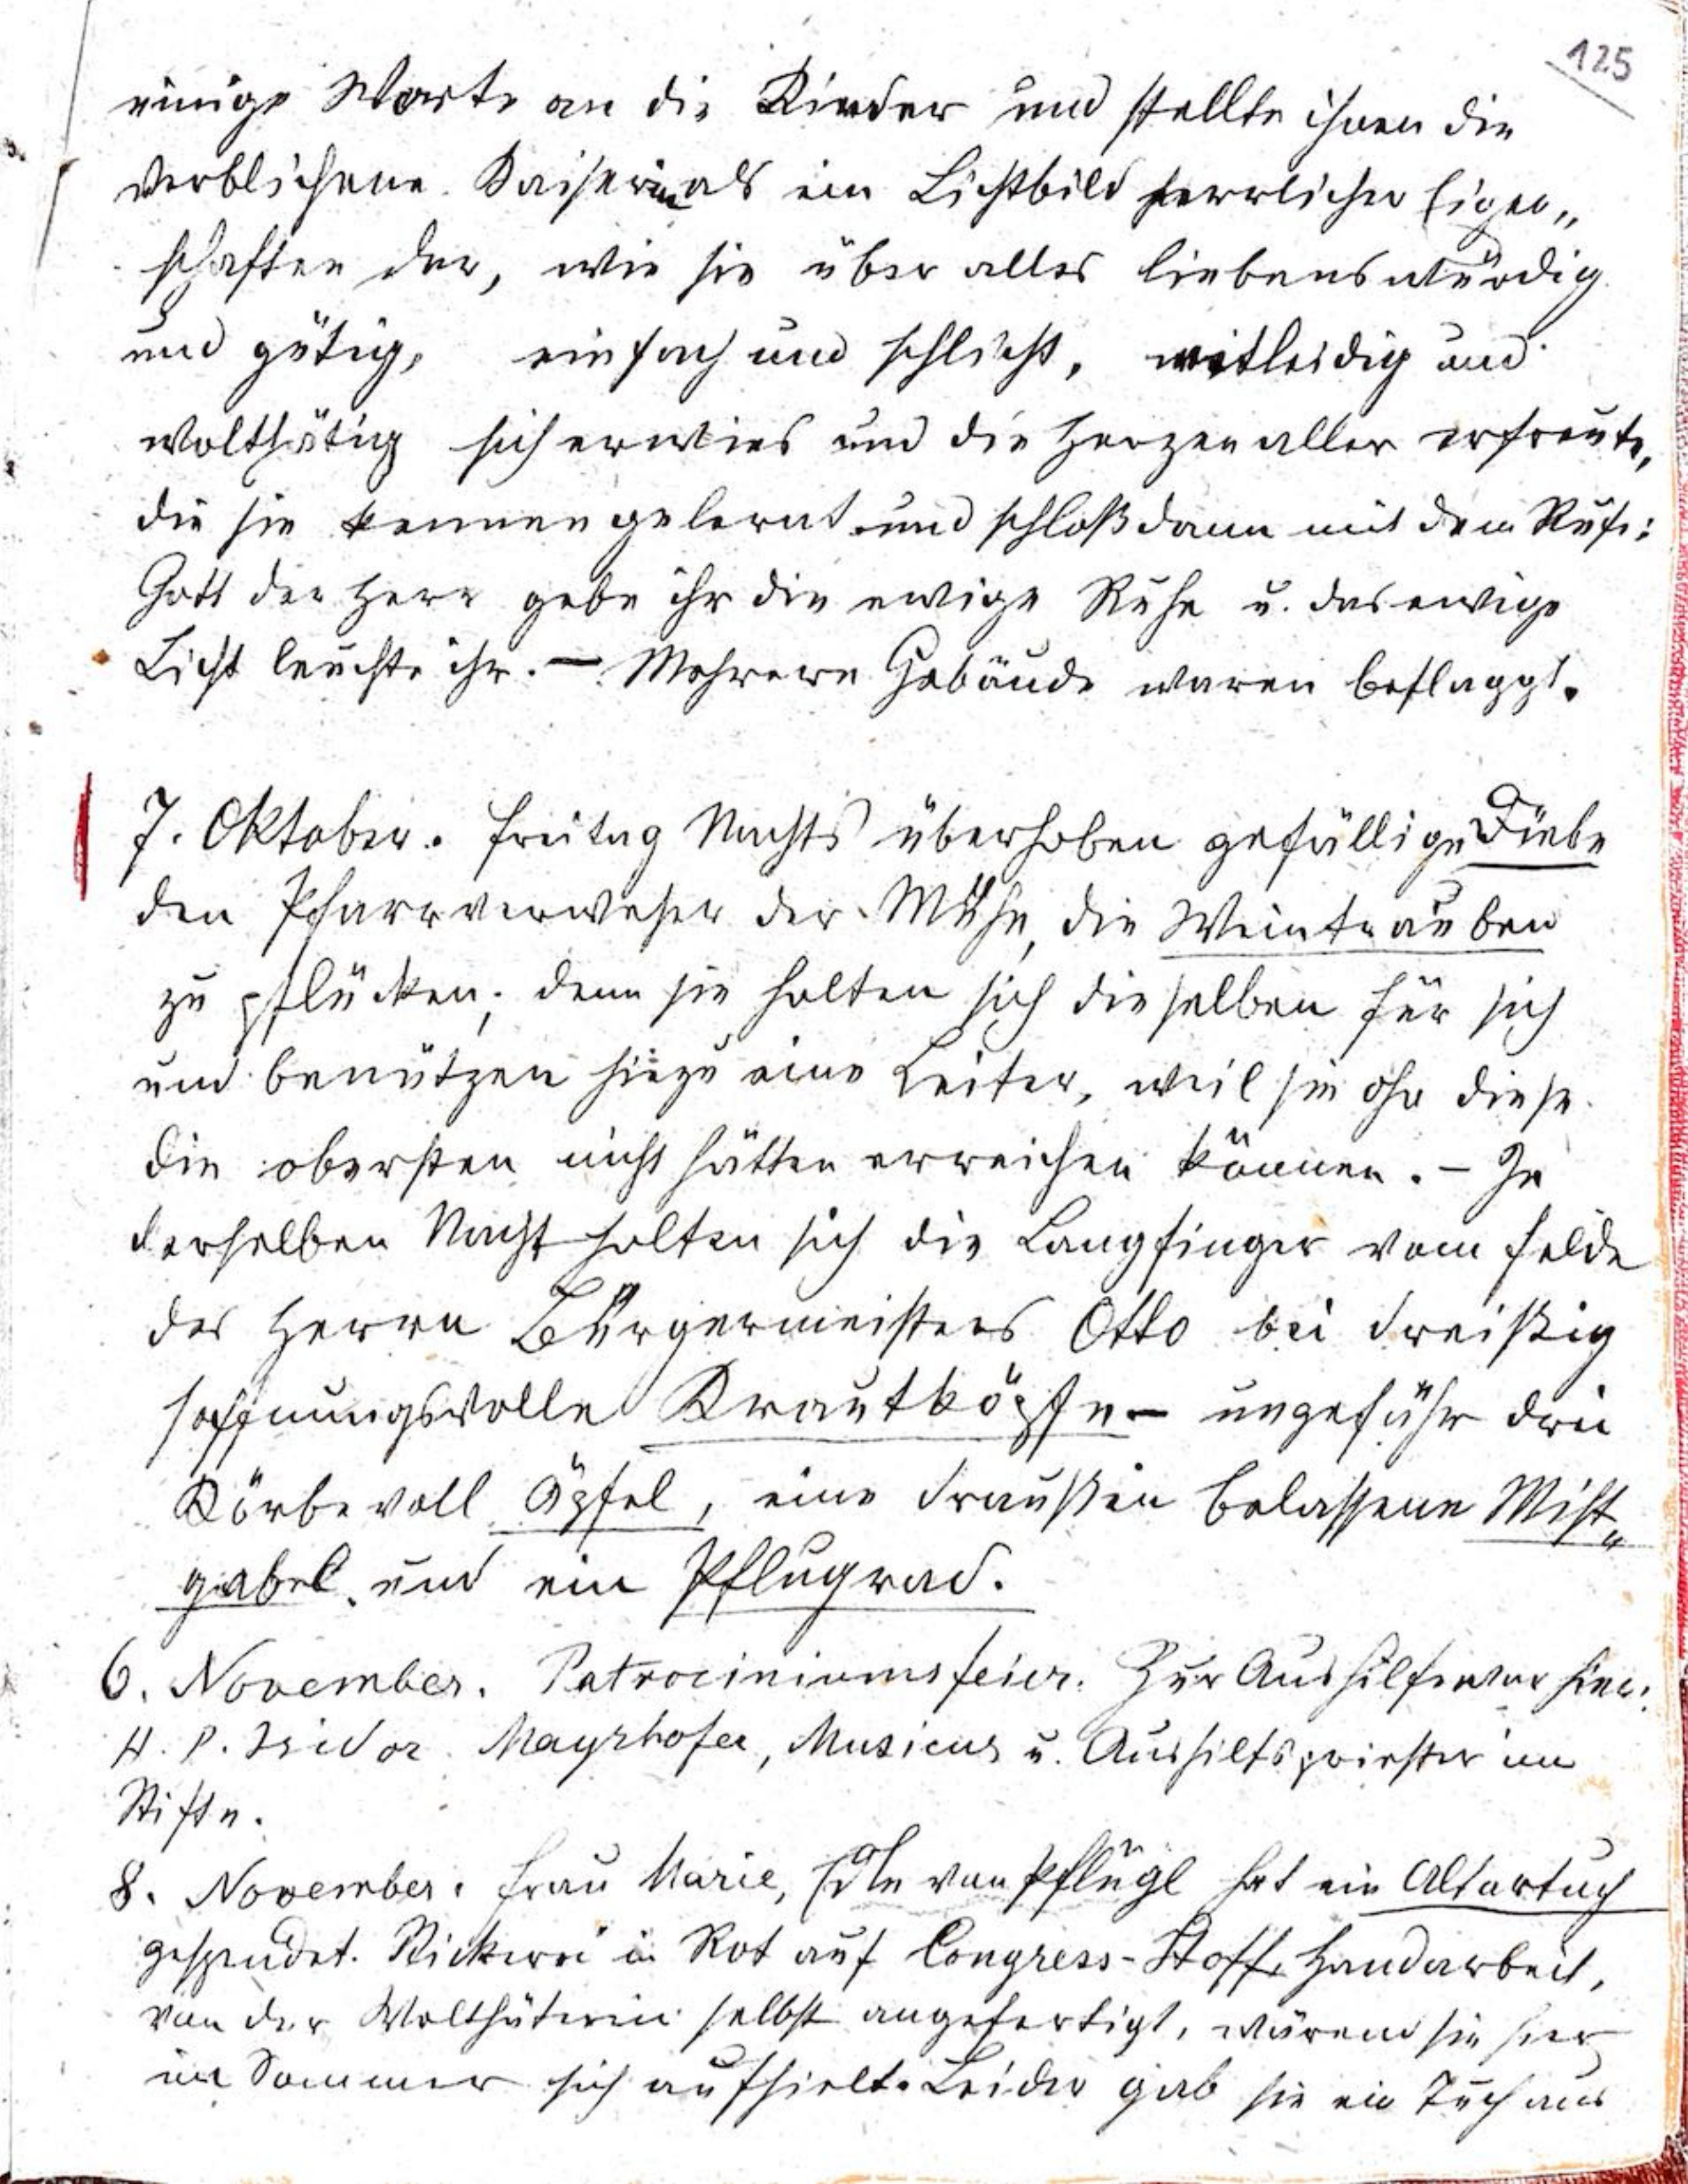 125
einige Worte an die Kinder und stellte ihnen die
verblichene Kaiserin als ein Lichtbild herrlicher Eigen„
schaften dar, wie sie über alles liebenswürdig
und gütig, einfach und schlicht, mitleidig und
wolthätig sich erwies und die Herzen aller erfreute,
die sie kennen gelernt und schloß dann mit dem Rufe:
Gott der Herr gebe ihr die ewige Ruhe u. das ewige
Licht leuchte ihr. – Mehrere Gebäude waren beflaggt.
7. Oktober. Freitag Nachts überhoben gefällige Diebe
den Pfarrverweser der Mühe, die Weintrauben
zu pflücken; denn sie holten sich dieselben für sich
und benützen hiezu eine Leiter, weil sie ohe diese
die obersten nicht hätten erreichen können. – In
derselben Nacht holten sich die Langfinger vom Felde
des Herrn Bürgermeisters Otto bei dreißig
hoffnungsvolle Krautköpfe – ungefähr drei
Körbe voll Äpfel, eine draußen belassene Mist„
gabel und ein Pflugrad.
6. November. Patrociniumsfeier. Zur Aushilfe war hier:
H. P. Isidor Mayrhofer, Musicus u. Aushilfspriester im
Stifte.
8. November. Frau Marie, Edle von Pflügl hat ein Altartuch
gespendet. Stickerei in Rot auf Congress-Stoff, Handarbeit,
von der Wolthäterin selbst angefertigt, wärend sie hier
im Sommer sich aufhielt. Leider gab sie ein Tuch aus